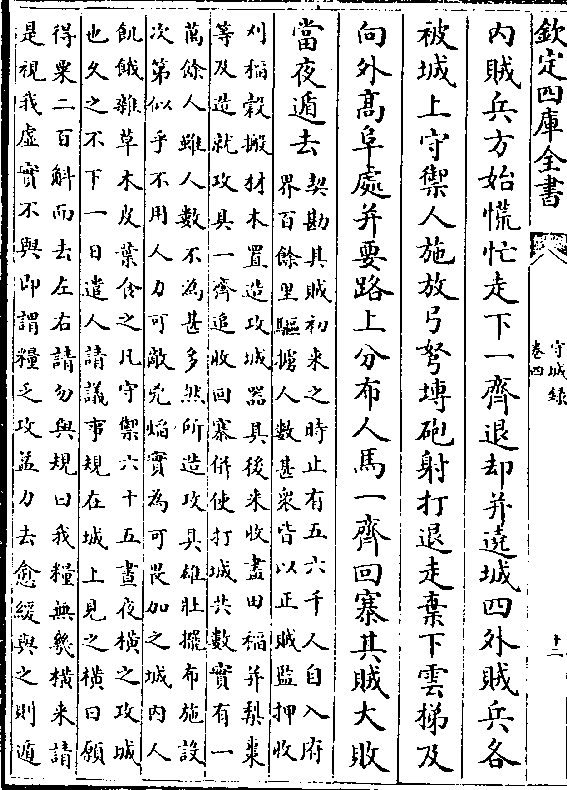 欽定四庫全書
守城録
卷四
十二
内賊兵方始慌忙走下一齊退却并遶城四外賊兵各
被城上守禦人施放弓弩塼砲射打退走棄下雲梯及
向外髙阜處并要路上分布人馬一齊回寨其賊大敗
當夜遁去
契勘其賊初来之時止有五六千人自入府
界百餘里驅擄人數甚衆皆以正賊監押收
刈稻榖搬材木置造攻城器具後来收盡田稻并梨棗
等及造就攻具一齊追收回寨併使打城共數實有一
萬餘人雖人數不為甚多然所造攻具雄壯擺布施設
次第似乎不用人力可敵兇焰實為可畏加之城内人
飢餓雜草木皮葉食之凡守禦六十五晝夜横之攻城
也久之不下一日遣人請議事規在城上見之横曰願
得粟二百斛而去左右請勿與規曰我糧無幾横来請
是視我虚實不與即謂糧乏攻益力去愈緩與之則遁